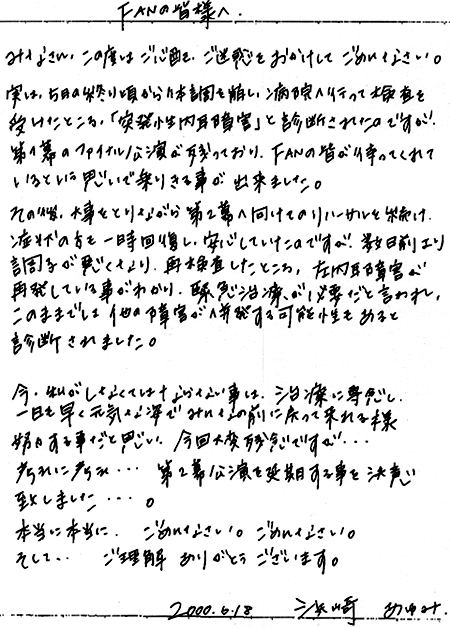 FANの皆様へ.
みなさん、この度はご心配を、ご迷惑をおかけして ごめんなさい。
実は、5月の終り頃から体調を崩し、病院へ行って検査を
受けたところ、「突発性内耳障害」と診断されたのですが、
第1幕のファイナル公演が残っており、FANの皆が待ってくれて
いるという思いで乗りきる事が出来ました。
その後、大事をとりながら第2幕へ向けてのリハーサルを続け、
症状の方も一時回復し、安心していたのですが、数日前より
調子が悪くなり、再検査したところ、左内耳障害が
再発している事がわかり、緊急治療が必要だと言われ、
このままでは他の障害が併発する可能性もあると
診断されました。
今、私がしなくてはならない事は、治療に専念し、
一日も早く元気な姿でみんなの前に戻って来れる様
努力する事だと思い、今回大変残念ですが・・・
考えに考え・・・ 第2幕公演を延期する事を決意
致しました・・・。
本当に本当に、ごめんなさい。ごめんなさい。
そして・・ ご理解 ありがとうございます。
2000.6.18 浜崎 あゆみ.